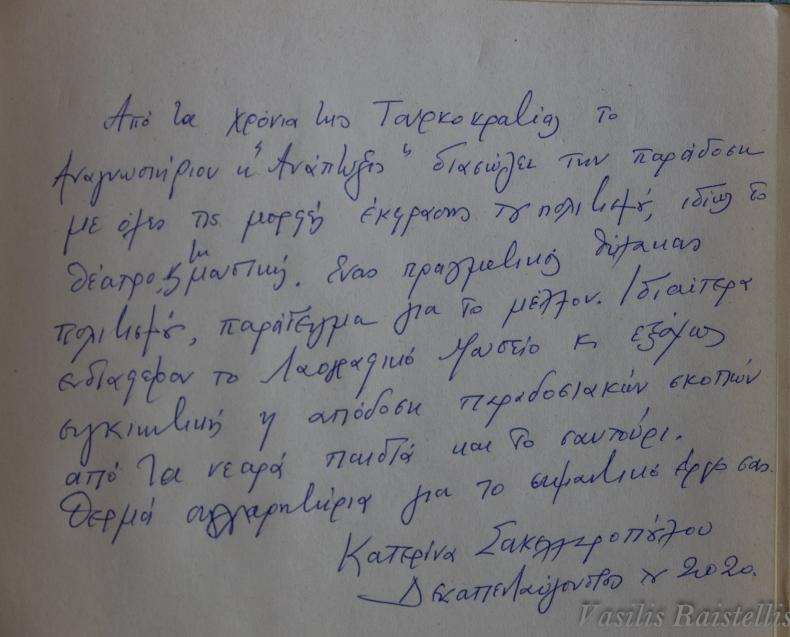 Από τα χρόνια της Τουρκοκρατίας το
Αναγνωστήριον η "Ανάπτυξις" διασώζει την παράδοση
με όλες τις μορφές έκφρασης του πολιτισμού, ιδίως το
θέατρο, κ τη μουσική. Ένας πραγματικός θύλακας
πολιτισμού, παράδειγμα για το μέλλον. Ιδιαίτερα
ενδιαφέρον το Λαογραφικό Μουσείο κ εξόχως
συγκινητική η απόδοση παραδοσιακών σκοπών
από τα νεαρά παιδιά και το σαντούρι.
Θερμά συγχαρητήρια για το σημαντικό έργο σας.
Κατερίνα Σακελλαροπούλου
Δεκαπενταύγουστος του 2020.
Vasilis Raistellis